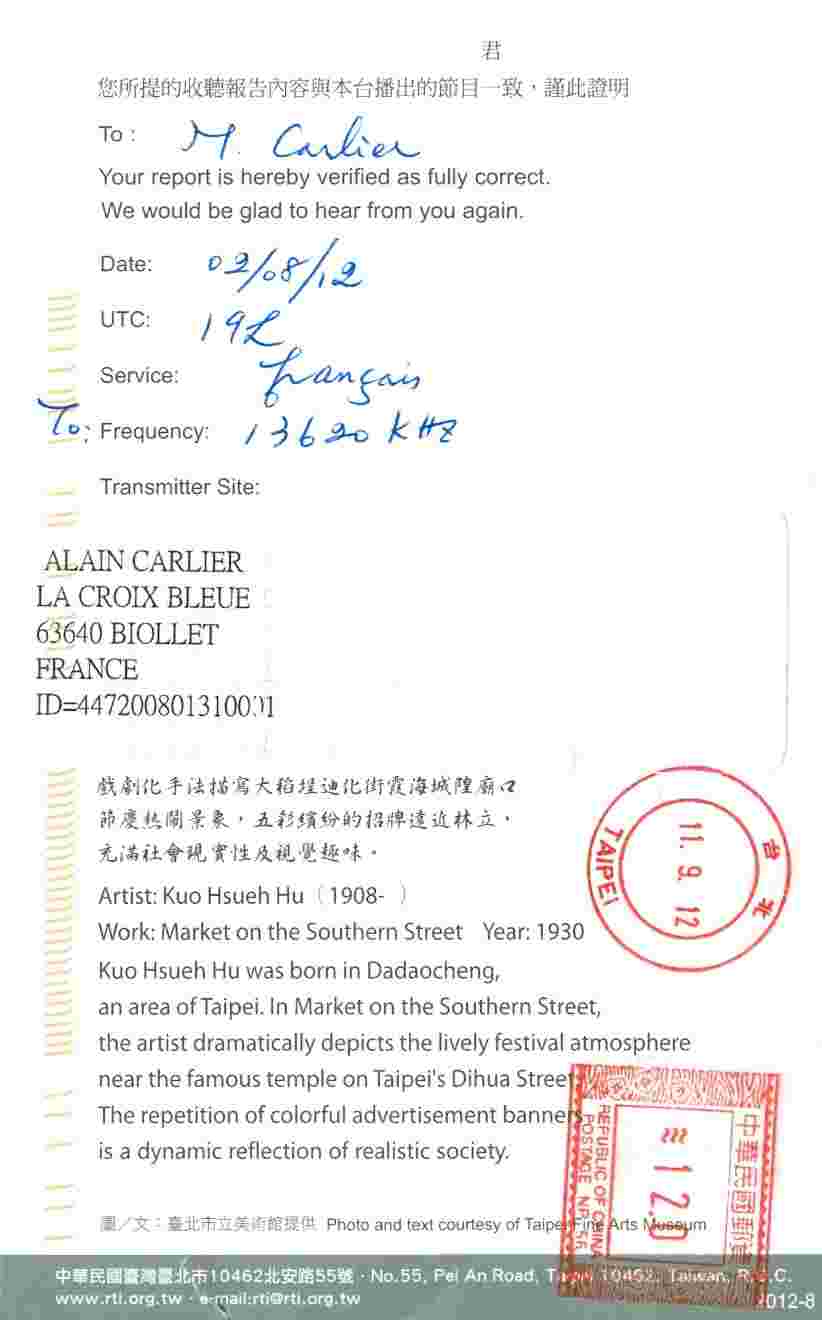 君
您所提的收聽報告內容與本台播出的節目一致，謹此證明
To : M. Carlier
Your report is hereby verified as fully correct.
We would be glad to hear from you again.
Date: 02/08/12
UTC: 19
Service: français
To: Frequency: 13620 KHZ
Transmitter Site:
ALAIN CARLIER
LA CROIX BLEUE
63640 BIOLLET
FRANCE
ID=447200801310001
戲劇化手法描寫大稻埕迪化街霞海城隍廟口
節慶熱鬧景象，五彩繽紛的招牌遠近林立，
充滿社會現實性及視覺趣味。
Artist: Kuo Hsueh Hu（1908- ）
Work: Market on the Southern Street Year: 1930
Kuo Hsueh Hu was born in Dadaocheng,
an area of Taipei. In Market on the Southern Street,
the artist dramatically depicts the lively festival atmosphere
near the famous temple on Taipei's Dihua Street.
The repetition of colorful advertisement banners
is a dynamic reflection of realistic society.
台北
11. 9. 12
TAIPEI
中華民國郵資
12.0
REPUBLIC OF CHINA
POSTAGE NP 56
圖／文：臺北市立美術館提供 Photo and text courtesy of Taipei Fine Arts Museum
中華民國臺灣臺北市10462北安路55號・No.55, Pei An Road, Taipei 10462, Taiwan, R.O.C.
www.rti.org.tw・e-mail:rti@rti.org.tw
2012-8